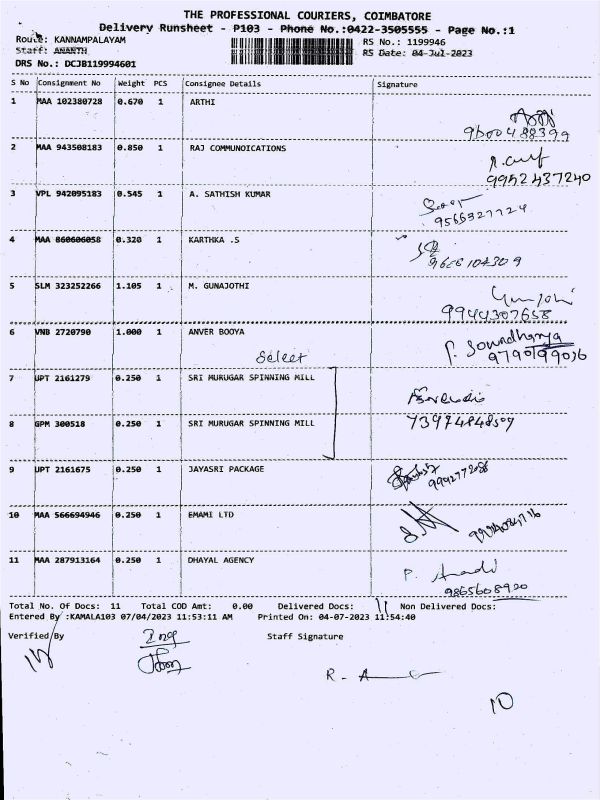 THE PROFESSIONAL COURIERS, COIMBATORE
Delivery Runsheet - P103 - Phone No.:0422-3505555 - Page No.:1
Route: KANNAMPALAYAM RS No.: 1199946
Staff: ANANTH RS Date: 04-Jul-2023
DRS No.: DCJB119994601
S No Consignment No Weight PCS Consignee Details Signature
1 MAA 102380728 0.670 1 ARTHI
9600488399
2 MAA 943508183 0.850 1 RAJ COMMUNOICATIONS
9952437240
3 VPL 942095183 0.545 1 A. SATHISH KUMAR
9566327724
4 MAA 860606058 0.320 1 KARTHKA .S
5 SLM 323252266 1.105 1 M. GUNAJOTHI
9944307658
6 VNB 2720790 1.000 1 ANVER BOOYA
Select
7 UPT 2161279 0.250 1 SRI MURUGAR SPINNING MILL
8 GPM 300518 0.250 1 SRI MURUGAR SPINNING MILL
9 UPT 2161675 0.250 1 JAYASRI PACKAGE
10 MAA 566694946 0.250 1 EMAMI LTD
11 MAA 287913164 0.250 1 DHAYAL AGENCY
9865608920
Total No. Of Docs: 11 Total COD Amt: 0.00 Delivered Docs: 11 Non Delivered Docs:
Entered By :KAMALA103 07/04/2023 11:53:11 AM Printed On: 04-07-2023 11:54:40
Verified By Staff Signature
10